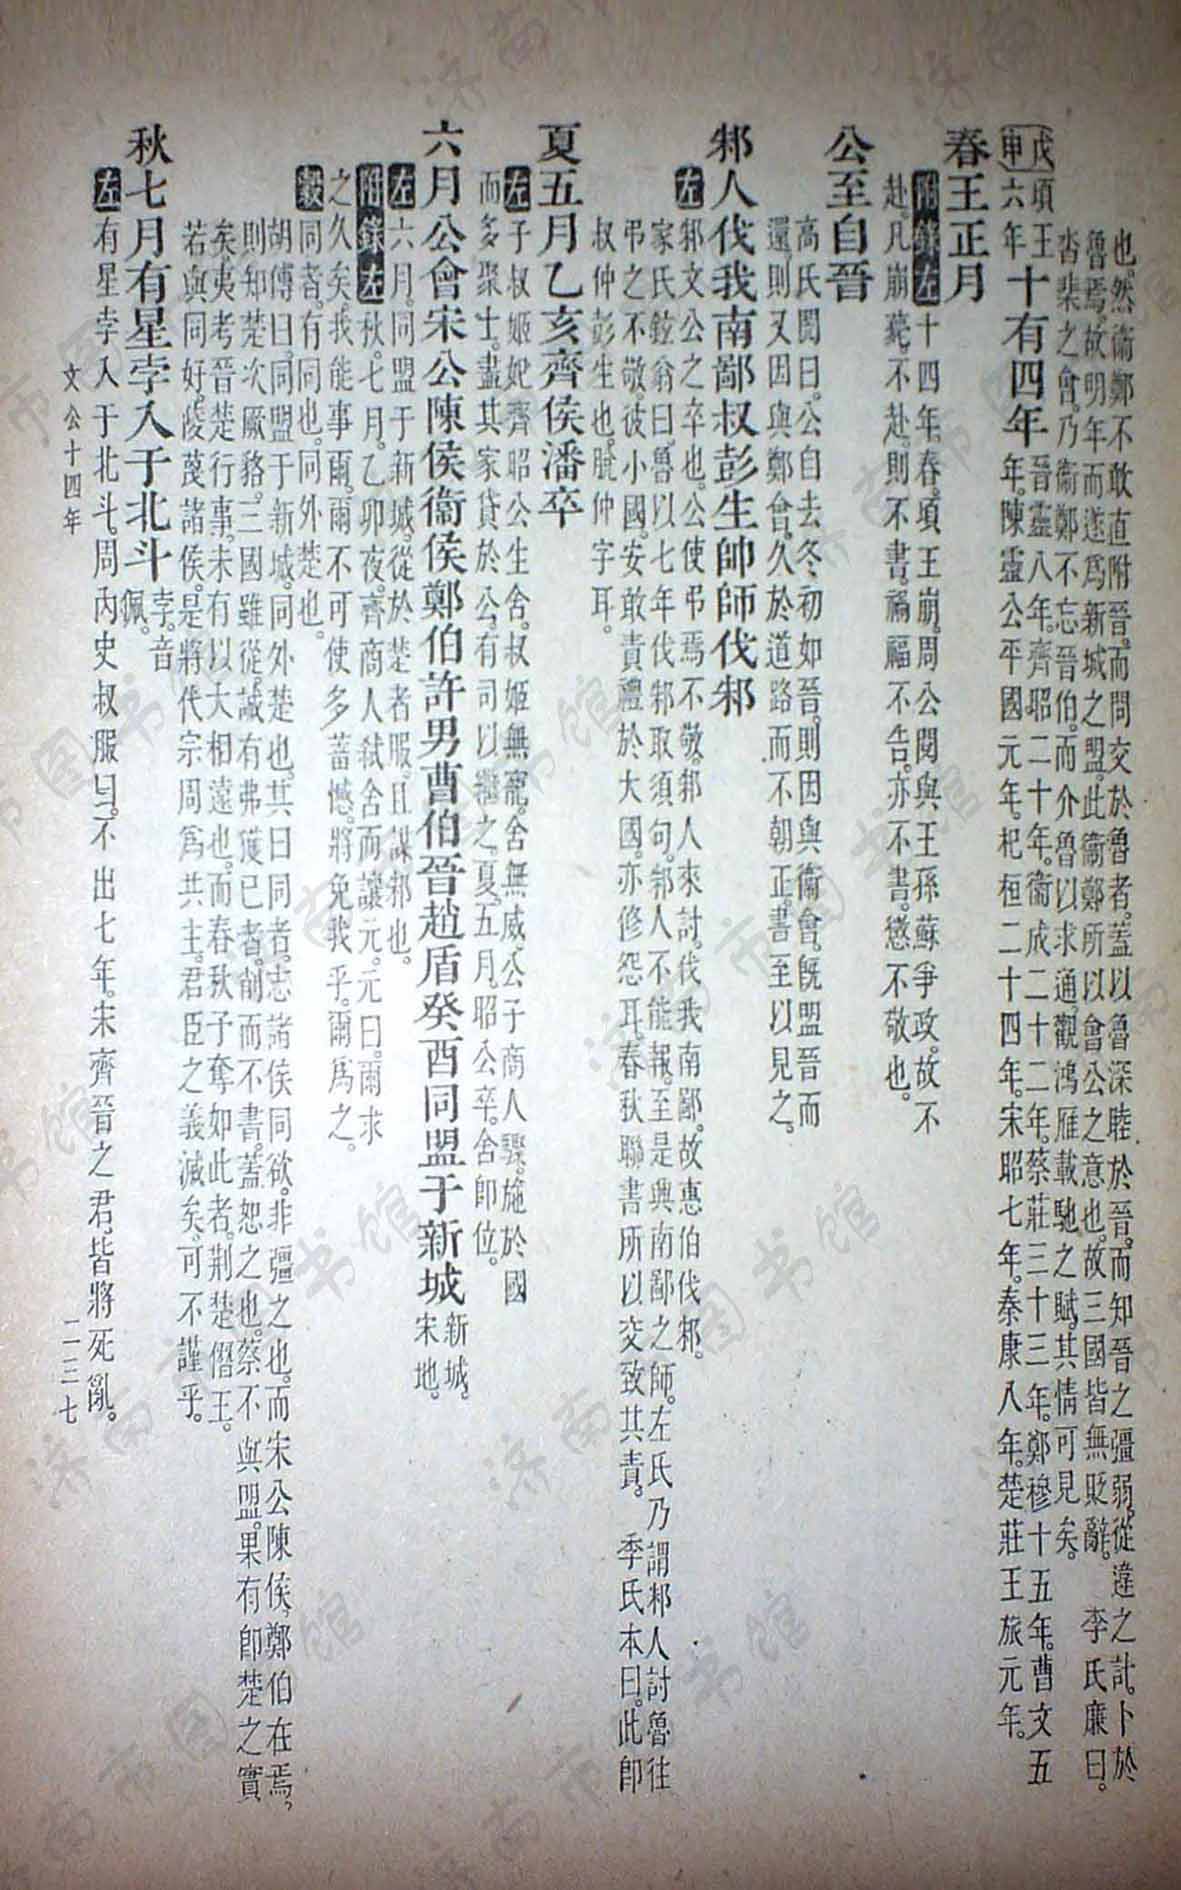 也。然衞鄭不敢直附晉。而問交於魯者。蓋以魯深睦於晉。而知晉之彊弱。從違之計。卜於
魯焉。故明年而遂爲新城之盟。此衞鄭所以會公之意也。故三國皆無貶辭。　李氏廉曰。
沓棐之會。乃衞鄭不忘晉伯。而介魯以求通。觀鴻雁載馳之賦。其情可見矣。
戊申
頃王六年
十有四年
晉靈八年。齊昭二十年。衞成二十二年。蔡莊三十三年。鄭穆十五年。曹文五
年。陳靈公平國元年。杞桓二十四年。宋昭七年。秦康八年。楚莊王旅元年。
春王正月
附錄左十四年。春。頃王崩。周公閱與王孫蘇爭政。故不
赴。凡崩薨。不赴。則不書。禍福不告。亦不書。懲不敬也。
公至自晉
高氏閌曰。公自去冬初如晉。則因與衞會。旣盟晉而
還。則又因與鄭會。久於道路。而不朝正。書至以見之。
邾人伐我南鄙叔彭生帥師伐邾
左邾文公之卒也。公使弔焉。不敬。邾人來討。伐我南鄙。故惠伯伐邾。
家氏鉉翁曰。魯以七年伐邾取須句。邾人不能報。至是興南鄙之師。左氏乃謂邾人討魯往
弔之不敬。彼小國。安敢責禮於大國。亦修怨耳。春秋聯書所以交致其責。　季氏本曰。此卽
叔仲彭生也。脫仲字耳。
夏五月乙亥齊侯潘卒
左子叔姬妃齊昭公生舍。叔姬無寵。舍無威。公子商人驟。施於國
而多聚士。盡其家貸於公。有司以繼之。夏。五月。昭公卒。舍卽位。
六月公會宋公陳侯衞侯鄭伯許男曹伯晉趙盾癸酉同盟于新城
新城。宋地。
左六月。同盟于新城。從於楚者服。且謀邾也。
附錄左秋。七月。乙卯夜。齊商人弒舍而讓元。元曰。爾求
之久矣。我能事爾。爾不可使多蓄憾。將免我乎。爾爲之。
穀同者。有同也。同外楚也。
胡傳曰。同盟于新城。同外楚也。其曰同者。志諸侯同欲。非彊之也。而宋公陳侯鄭伯在焉。
則知楚次厥貉。三國雖從。誠有弗獲已者。削而不書。蓋恕之也。蔡不與盟。果有卽楚之實
矣。夷考晉楚行事。未有以大相遠也。而春秋予奪如此者。荆楚僭王。
若與同好。陵蔑諸侯。是將代宗周爲共主。君臣之義滅矣。可不謹乎。
秋七月有星孛入于北斗
孛。音佩。
左有星孛入于北斗。周內史叔服曰。不出七年。宋齊晉之君。皆將死亂。
文公十四年
二三七